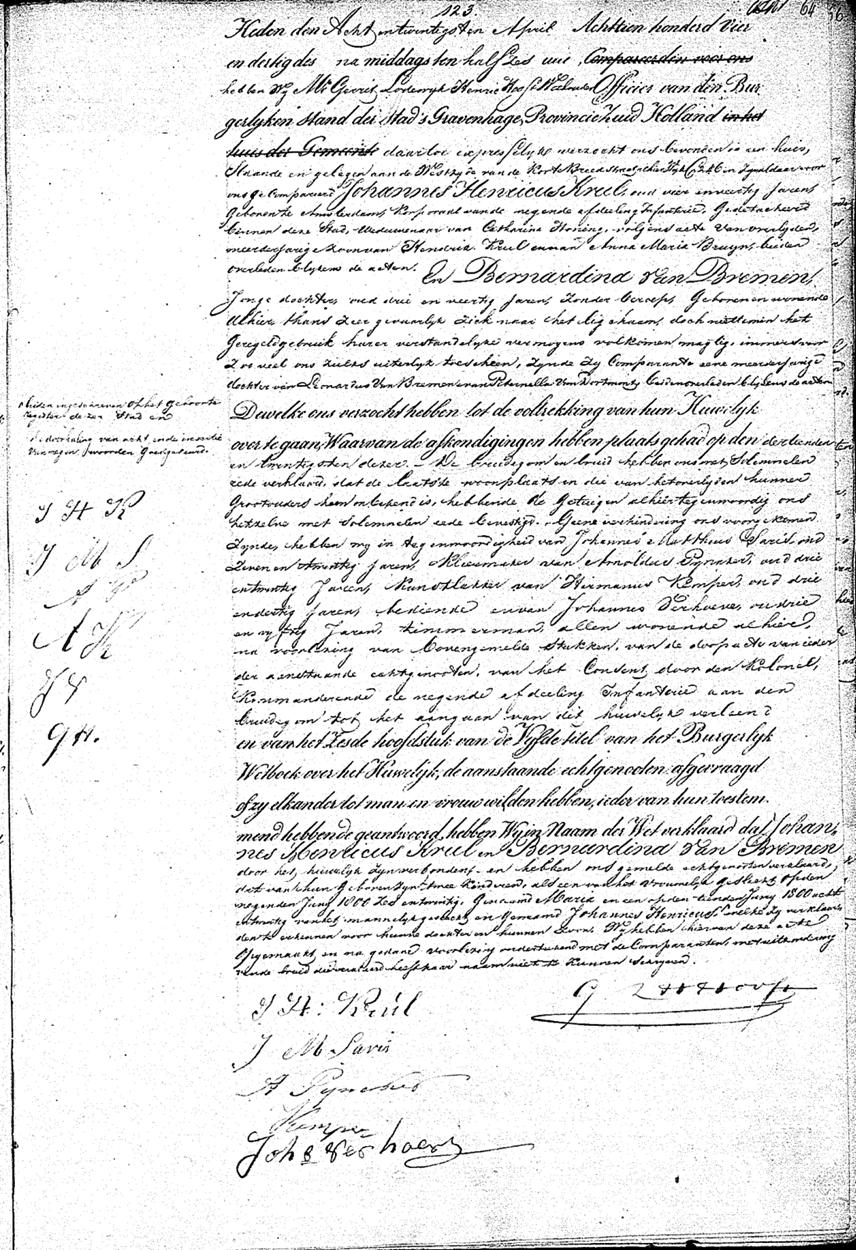 123.
64
56
Heden den Acht en twintigsten April Achttien honderd Vier
en dertig des na middags ten half zes ure, Compareerden voor ons
hebben Wy Mr Gerrit Lodewyk Henric Hooft Officier van den Bur
gerlyken stand der Stad 's Gravenhage, Provincie Zuid Holland in het
huis der Gemeente daartoe expresselyk verzocht ons bevonden in een huis,
staande en gelegen aan de Westzyde van de Korte
ons gecompareerd Johannes Henricus Krul, oud vier en veertig Jaren
Geboren te Amsterdam, Korporaal van de negende afdeeling Infanterie, Gedetacheerd
binnen deze Stad, Weduwenaar van Catharina Honing, volgens acte van overlyden,
meerderjarige Zoon van Hendrik Krul en van Anna Maria Bruyn, beiden
overleden blykens de acten. En Bernardina van Bremen,
Jonge dochter, oud drie en veertig Jaren, Zonder beroep, Geboren en wonende
alhier, thans zeer gevaarlyk Ziek naar het ligchaam, doch niettemin het
Geregeld gebruik harer verstandelyke vermogens volkomen magtig, immers voor
Zoo veel ons zulks uiterlyk toescheen, Zynde Zy Comparante eene meerderjarige
dochter van Leonardus Van Bremen en van Pieternella Van Dortmont, beiden overleden blykens de acten
Dewelke ons verzocht hebben tot de voltrekking van hun Huwelyk
over te gaan, Waarvan de afkondigingen hebben plaats gehad op den dertienden
en twintigsten dezer. De bruidegom en bruid hebben ons met Solemnelen
eede verklaard, dat de laatste woonplaats en die van het overlyden hunner
Grootouders hun onbekend is, hebbende de Getuigen alhier tegenwoordig ons
hetzelve met Solemnelen eede bevestigd. Geene verhindering ons voorgekomen
Zynde, hebben wy in tegenwoordigheid van Johannes Matthias Saris, oud
Zeven en twintig Jaren, Kleermaker van Arnoldus Pynaker, oud drie
en twintig Jaren, Kunstlakker van Hermanus Kemper, oud drie
en dertig Jaren, bediende en van Johannes Verhoeve, oud drie
en vyftig Jaren, timmerman, allen wonende alhier,
na voorlezing van bovengemelde stukken, van de doopacte van ieder
der aanstaande echtgenooten, van het Consent, door den Kolonel,
Kommanderende de negende afdeeling Infanterie aan den
bruidegom tot het aangaan van dit huwelyk verleend
en van het Zesde hoofdstuk van de Vyfde titel van het Burgerlyk
Wetboek over het Huwelyk, de aanstaande echtgenooten afgevraagd
of zy elkander tot man en vrouw wilden hebben, ieder van hun toestem
mend hebbende geantwoord, hebben Wy in Naam der Wet verklaard dat Johan
nes Henricus Krul en Bernardina van Bremen
door het huwelyk Zyn verbonden. en hebben ons gemelde echtgenooten verklaard,
dat van hun Geboren Zyn twee Kinderen, als een van het Vrouwelyk Geslacht op den
negenden Juny 1800 Zes en twintig, Genaamd Maria en een op den tienden Juny 1800 acht
en twintig van het mannelyk geslacht en Genaamd Johannes Henricus welke Zy verklaar
den te erkennen voor hunne dochter en hunnen Zoon. Wy hebben hiervan deze acte
opgemaakt, en na gedane voorlezing onderteekend met de Comparanten, met uitzondering
van de bruid die verklaard heeft haar naam niet te kunnen schryven.
beiden ingeschreven op het geboorte
register dezer Stad en
Vier regels, worden Goedgekeurd.
J H K
J M S
A P
H K
J V
G H.
J H: Krul
J M Saris
A Pynaker
Kemper
Joh Verhoeve